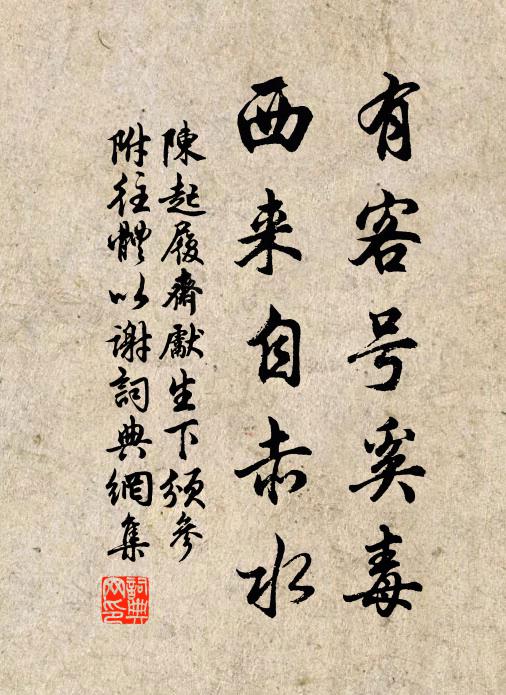 有客号奚毒
西来自赤水
陳起履齋獻生下頒參
附往體以谢詞典網集
詞典网印